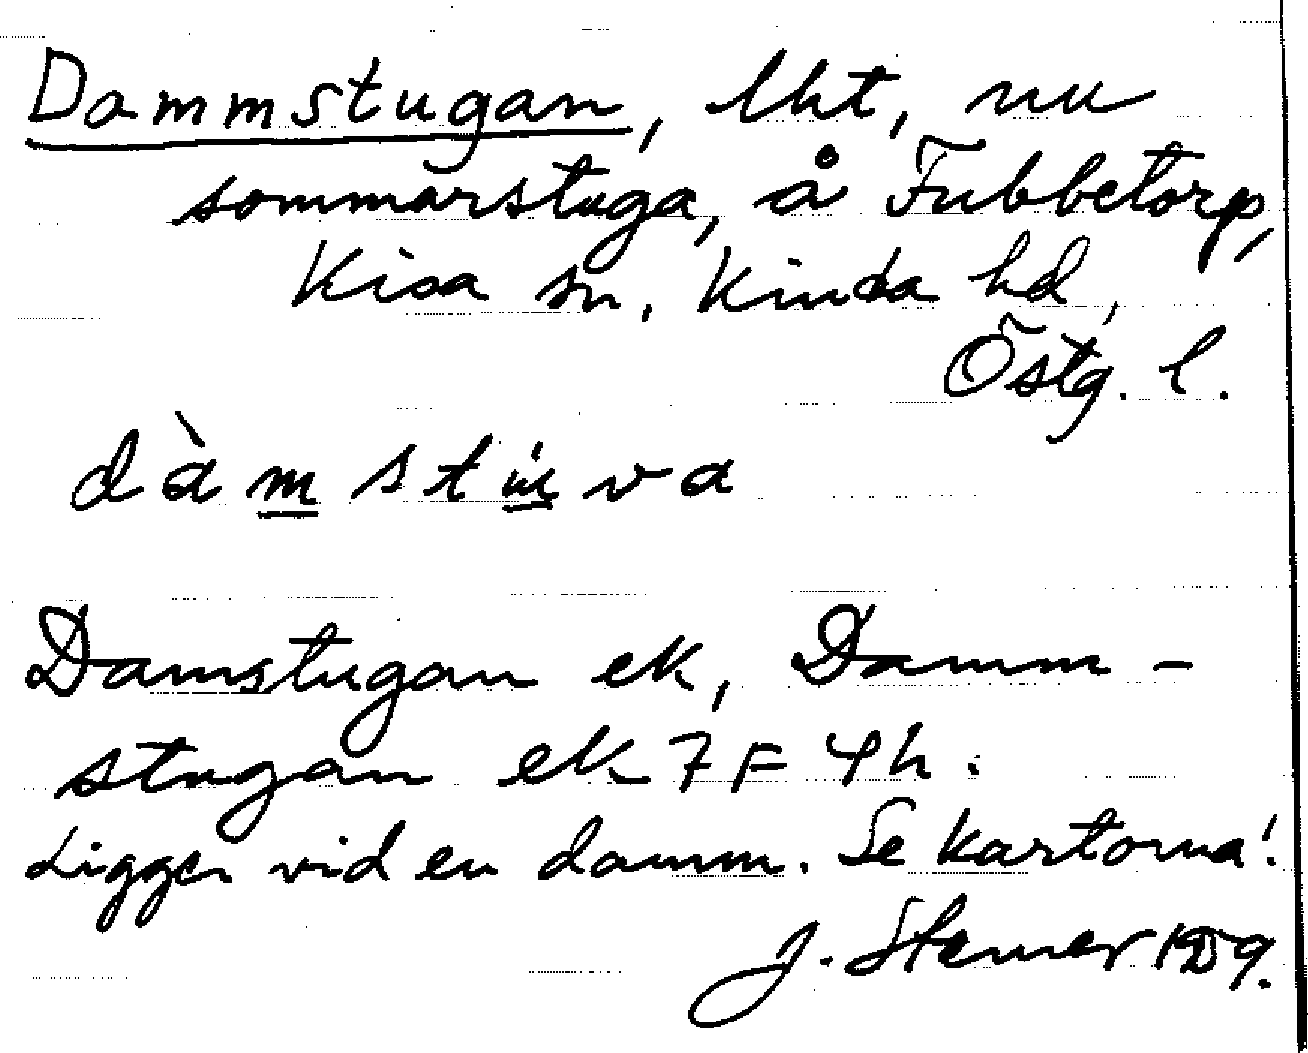 Dammstugan, lht, nu
sommarstuga, å Fubbetorp,
Kisa sn, Kinda hd,
Östg. l.
dàmstu̇va
Damstugan ek, Damm-
stugan ek 7F 4h.
Ligger vid en damm. Se kartorna!
J.